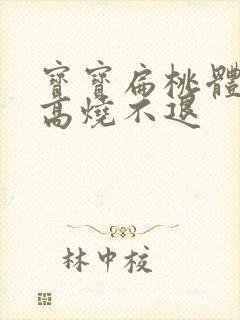 寶寶扁桃體
高燒不退
林中校